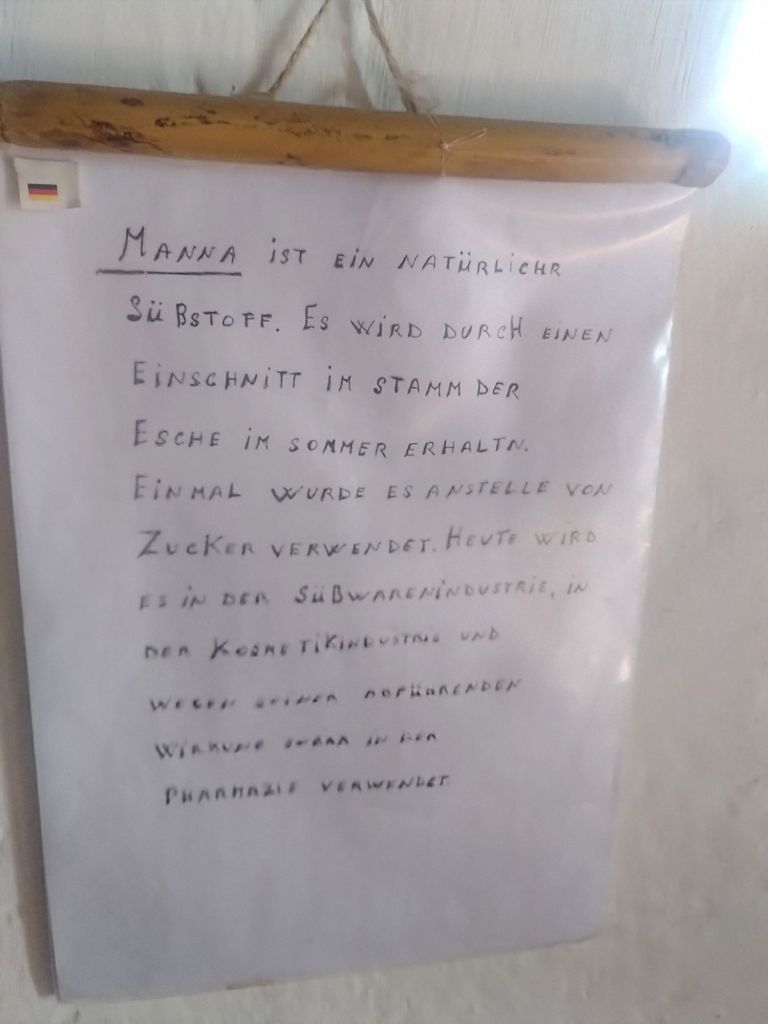 MANNA IST EIN NATÜRLICHR
SÜßSTOFF. ES WIRD DURCH EINEN
EINSCHNITT IM STAMM DER
ESCHE IM SOMMER ERHALTN.
EINMAL WURDE ES ANSTELLE VON
ZUCKER VERWENDET. HEUTE WIRD
ES IN DER SÜßWARENINDUSTRIE, IN
DER KOSMETIKINDUSTRIE UND
WEGEN SEINER ABFÜHRENDEN
WIRKUNG SOGAR IN DER
PHARMAZIE VERWENDET.